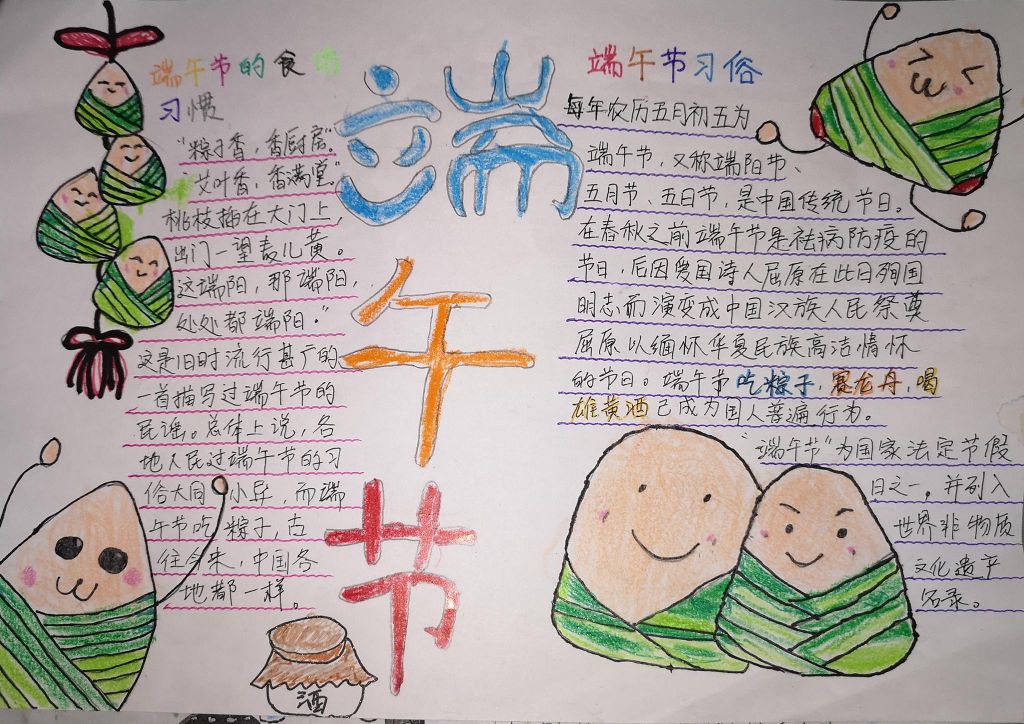 端午节的食俗
习惯
"粽子香，香厨房。"
"艾叶香，香满堂。"
桃枝插在大门上，
出门一望麦儿黄。
这端阳，那端阳，
处处都端阳。"
这是旧时流行甚广的
一首描写过端午节的
民谣。总体上说，各
地人民过端午节的习
俗大同小异，而端
午节吃粽子，古
往今来，中国各
地都一样。
酒
端
午
节
端午节习俗
每年农历五月初五为
端午节，又称端阳节、
五月节、五日节，是中国传统节日。
在春秋之前端午节是祛病防疫的
节日，后因爱国诗人屈原在此日殉国
明志而演变成中国汉族人民祭奠
屈原以缅怀华夏民族高洁情怀
的节日。端午节吃粽子，赛龙舟，喝
雄黄酒已成为国人普遍行为。
"端午节"为国家法定节假
日之一，并列入
世界非物质
文化遗产
名录。